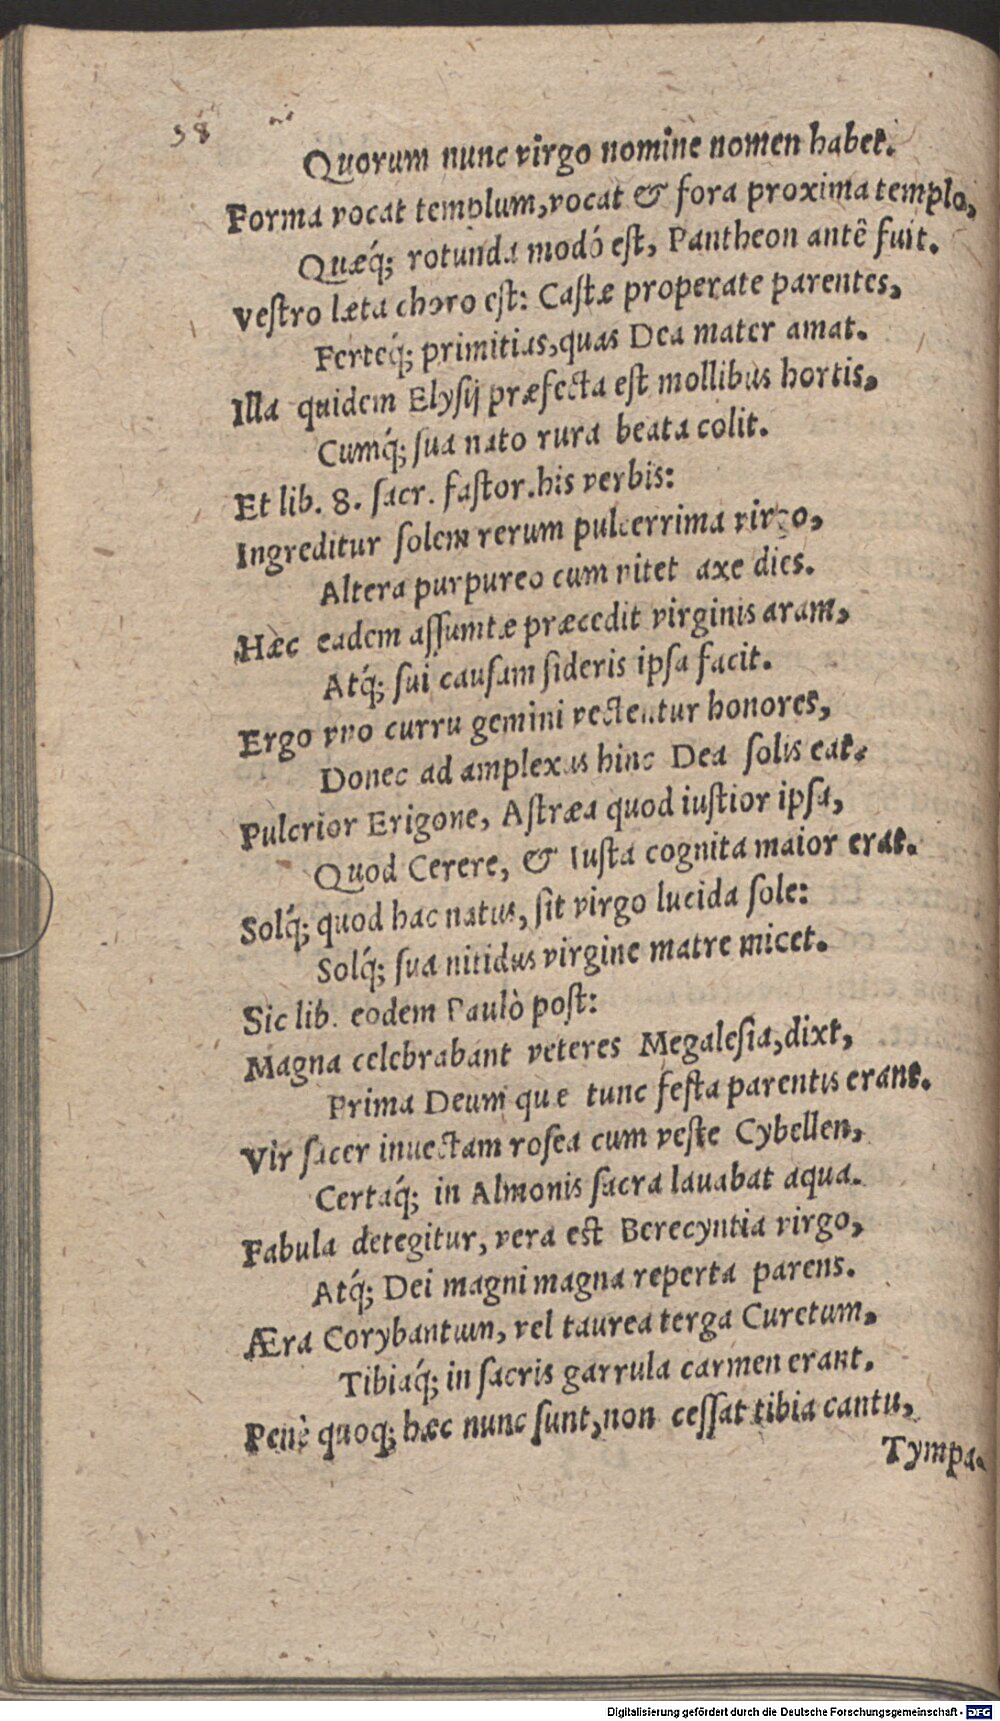 58
Quorum nunc virgo nomine nomen habet.
Forma vocat templum, vocat & fora proxima templo,
Quæq́; rotunda modó est, Pantheon antê fuit.
Vestro læta choro est: Castæ properate parentes,
Ferteq́; primitias, quas Dea mater amat.
Illa quidem Elysij præfecta est mollibus hortis,
Cumq́; sua nato rura beata colit.
Et lib. 8. sacr. fastor. his verbis:
Ingreditur solem rerum pulcerrima virgo,
Altera purpureo cum nitet axe dies.
Hæc eadem assumtæ præcedit virginis aram,
Atq́; sui causam sideris ipsa facit.
Ergo vno curru gemini vectentur honores,
Donec ad amplexus hinc Dea solis eat.
Pulcrior Erigone, Astræa quod iustior ipsa,
Quod Cerere, & Iusta cognita maior erat.
Solq́; quod hac natus, sit virgo lucida sole:
Solq́; sua nitidus virgine matre micet.
Sic lib. eodem Paulò post:
Magna celebrabant veteres Megalesia, dixt,
Prima Deum que tunc festa parentis erant.
Vir sacer inuectam rosea cum veste Cybellen,
Certaq́; in Almonis sacra lauabat aqua.
Fabula detegitur, vera est Berecyntia virgo,
Atq́; Dei magni magna reperta parens.
Æra Corybantum, vel taurea terga Curetum,
Tibiaq́; in sacris garrula carmen erant.
Penè quoq; hæc nunc sunt, non cessat tibia cantu,
Tympa-
Digitalisierung gefördert durch die Deutsche Forschungsgemeinschaft - DFG